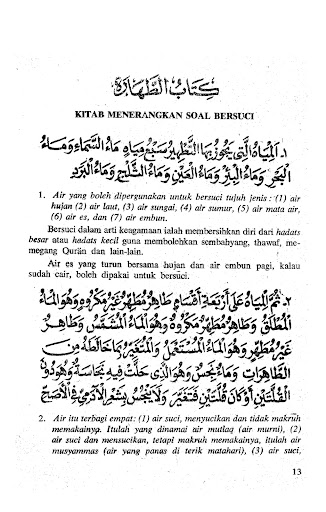 كتاب الطهارة
KITAB MENERANGKAN SOAL BERSUCI
١. اَلْمِيَاهُ الَّتِي يَجُوزُ بِهَا التَّطْهِيرُ سَبْعُ مِيَاهٍ مَاءُ السَّمَاءِ وَمَاءُ
الْبَحْرِ وَمَاءُ الْبِئْرِ وَمَاءُ الْعَيْنِ وَمَاءُ الثَّلْجِ وَمَاءُ الْبَرَدِ
1. Air yang boleh dipergunakan untuk bersuci tujuh jenis : (1) air
hujan (2) air laut, (3) air sungai, (4) air sumur, (5) air mata air,
(6) air es, dan (7) air embun.
Bersuci dalam arti keagamaan ialah membersihkan diri dari hadats
besar atau hadats kecil guna membolehkan sembahyang, thawaf, me-
megang Qurän dan lain-lain.
Air es yang turun bersama hujan dan air embun pagi, kalau
sudah cair, boleh dipakai untuk bersuci.
٢. ثُمَّ الْمِيَاهُ عَلَى أَرْبَعَةِ أَقْسَامٍ طَاهِرٌ مُطَهِّرٌ غَيْرُ مَكْرُوهٍ وَهُوَ الْمَاءُ
الْمُطْلَقُ وَطَاهِرٌ مُطَهِّرٌ مَكْرُوهٌ وَهُوَ الْمَاءُ الْمُشَمَّسُ وَطَاهِرٌ
غَيْرُ مُطَهِّرٍ وَهُوَ الْمَاءُ الْمُسْتَعْمَلُ وَالْمُتَغَيِّرُ بِمَا خَالَطَهُ مِنَ
الطَّاهِرَاتِ وَمَاءٌ نَجِسٌ وَهُوَ الَّذِي حَلَّتْ فِيهِ نَجَاسَةٌ وَهُوَ دُونَ
الْقُلَّتَيْنِ أَوْ كَانَ قُلَّتَيْنِ فَتَغَيَّرَ وَلَا يَنْجُسُ بِشَعْرِ الْآدَمِيِّ فِي الْأَصَحِّ
2. Air itu terbagi empat: (1) air suci, menyucikan dan tidak makrüh
memakainya. Itulah yang dinamai air mutlaq (air murni), (2)
air suci dan mensucikan, tetapi makruh memakainya, itulah air
musyammas (air yang panas di terik matahari), (3) air suci,
13